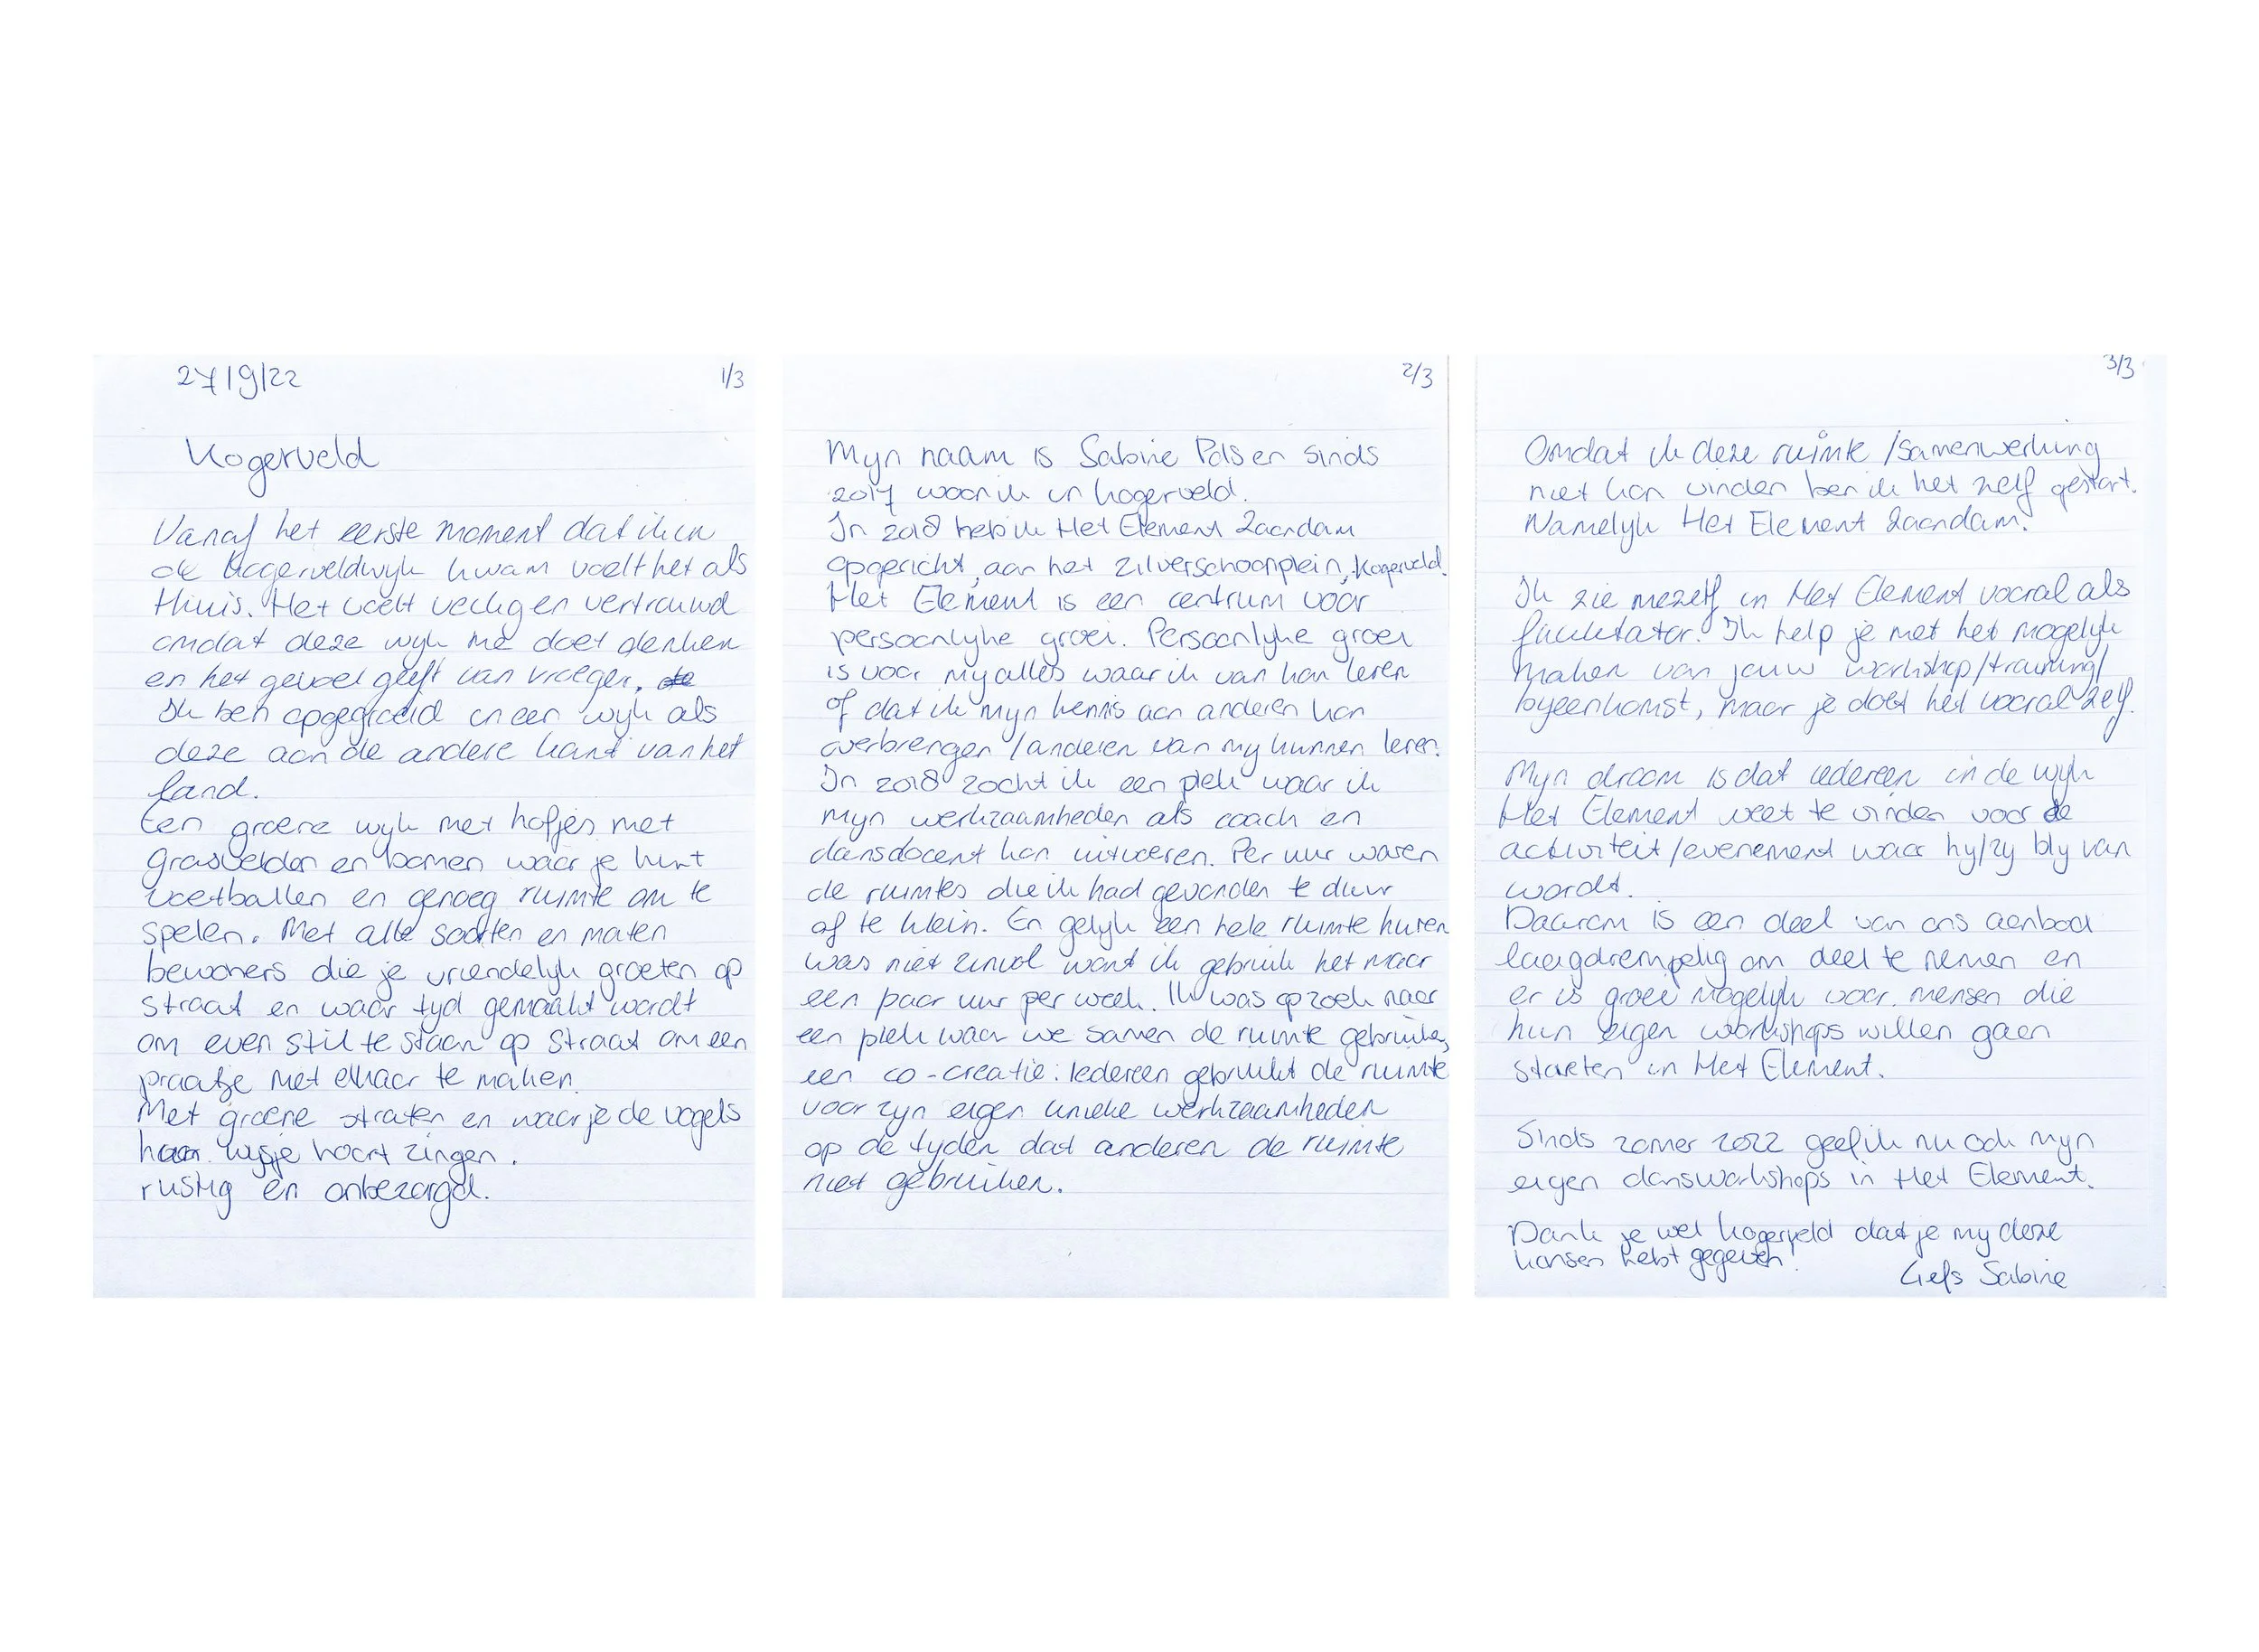 27/9/22
1/3
Kogerveld
Vanaf het eerste moment dat ik in
de Kogerveldwijk kwam voelt het als
thuis. Het voelt veilig en vertrouwd
omdat deze wijk me doet denken
en het gevoel geeft van vroeger. de
Ik ben opgegroeid in een wijk als
deze aan de andere kant van het
land.
Een groene wijk met hofjes met
grasvelden en bomen waar je kunt
voetballen en genoeg ruimte om te
spelen. Met alle soorten en maten
bewoners die je vriendelijk groeten op
straat en waar tijd gemaakt wordt
om even stil te staan op straat om een
praatje met elkaar te maken.
Met groene straten en waar je de vogels
haar liedje hoort zingen.
rustig en onbezorgd.
2/3
Mijn naam is Sabine Pols en sinds
2017 woon ik in Kogerveld.
In 2018 heb ik Het Element Zaandam
opgericht, aan het Zilverschoonplein, Kogerveld.
Het Element is een centrum voor
persoonlijke groei. Persoonlijke groei
is voor mij alles waar ik van kan leren
of dat ik mijn kennis aan anderen kan
overbrengen / anderen van mij kunnen leren.
In 2018 zocht ik een plek waar ik
mijn werkzaamheden als coach en
dansdocent kon uitvoeren. Per uur waren
de ruimtes die ik had gevonden te duur
of te klein. En gelijk een hele ruimte huren
was niet zinvol want ik gebruik het maar
een paar uur per week. Ik was op zoek naar
een plek waar we samen de ruimte gebruiken,
een co-creatie: Iedereen gebruikt de ruimte
voor zijn eigen unieke werkzaamheden
op de tijden dat anderen de ruimte
niet gebruiken.
3/3
Omdat ik deze ruimte / samenwerking
niet kon vinden ben ik het zelf gestart.
Namelijk Het Element Zaandam.
Ik zie mezelf in Het Element vooral als
facilitator. Ik help je met het mogelijk
maken van jouw workshop/training/
bijeenkomst, maar je doet het vooral zelf.
Mijn droom is dat iedereen in de wijk
Het Element weet te vinden voor de
activiteit / evenement waar hij/zij blij van
wordt.
Daarom is een deel van ons aanbod
laagdrempelig om deel te nemen en
er is groei mogelijk voor mensen die
hun eigen workshops willen gaan
starten in Het Element.
Sinds zomer 2022 geef ik nu ook mijn
eigen dansworkshops in Het Element.
Dank je wel Kogerveld dat je mij deze
kansen hebt gegeven!
Liefs Sabine